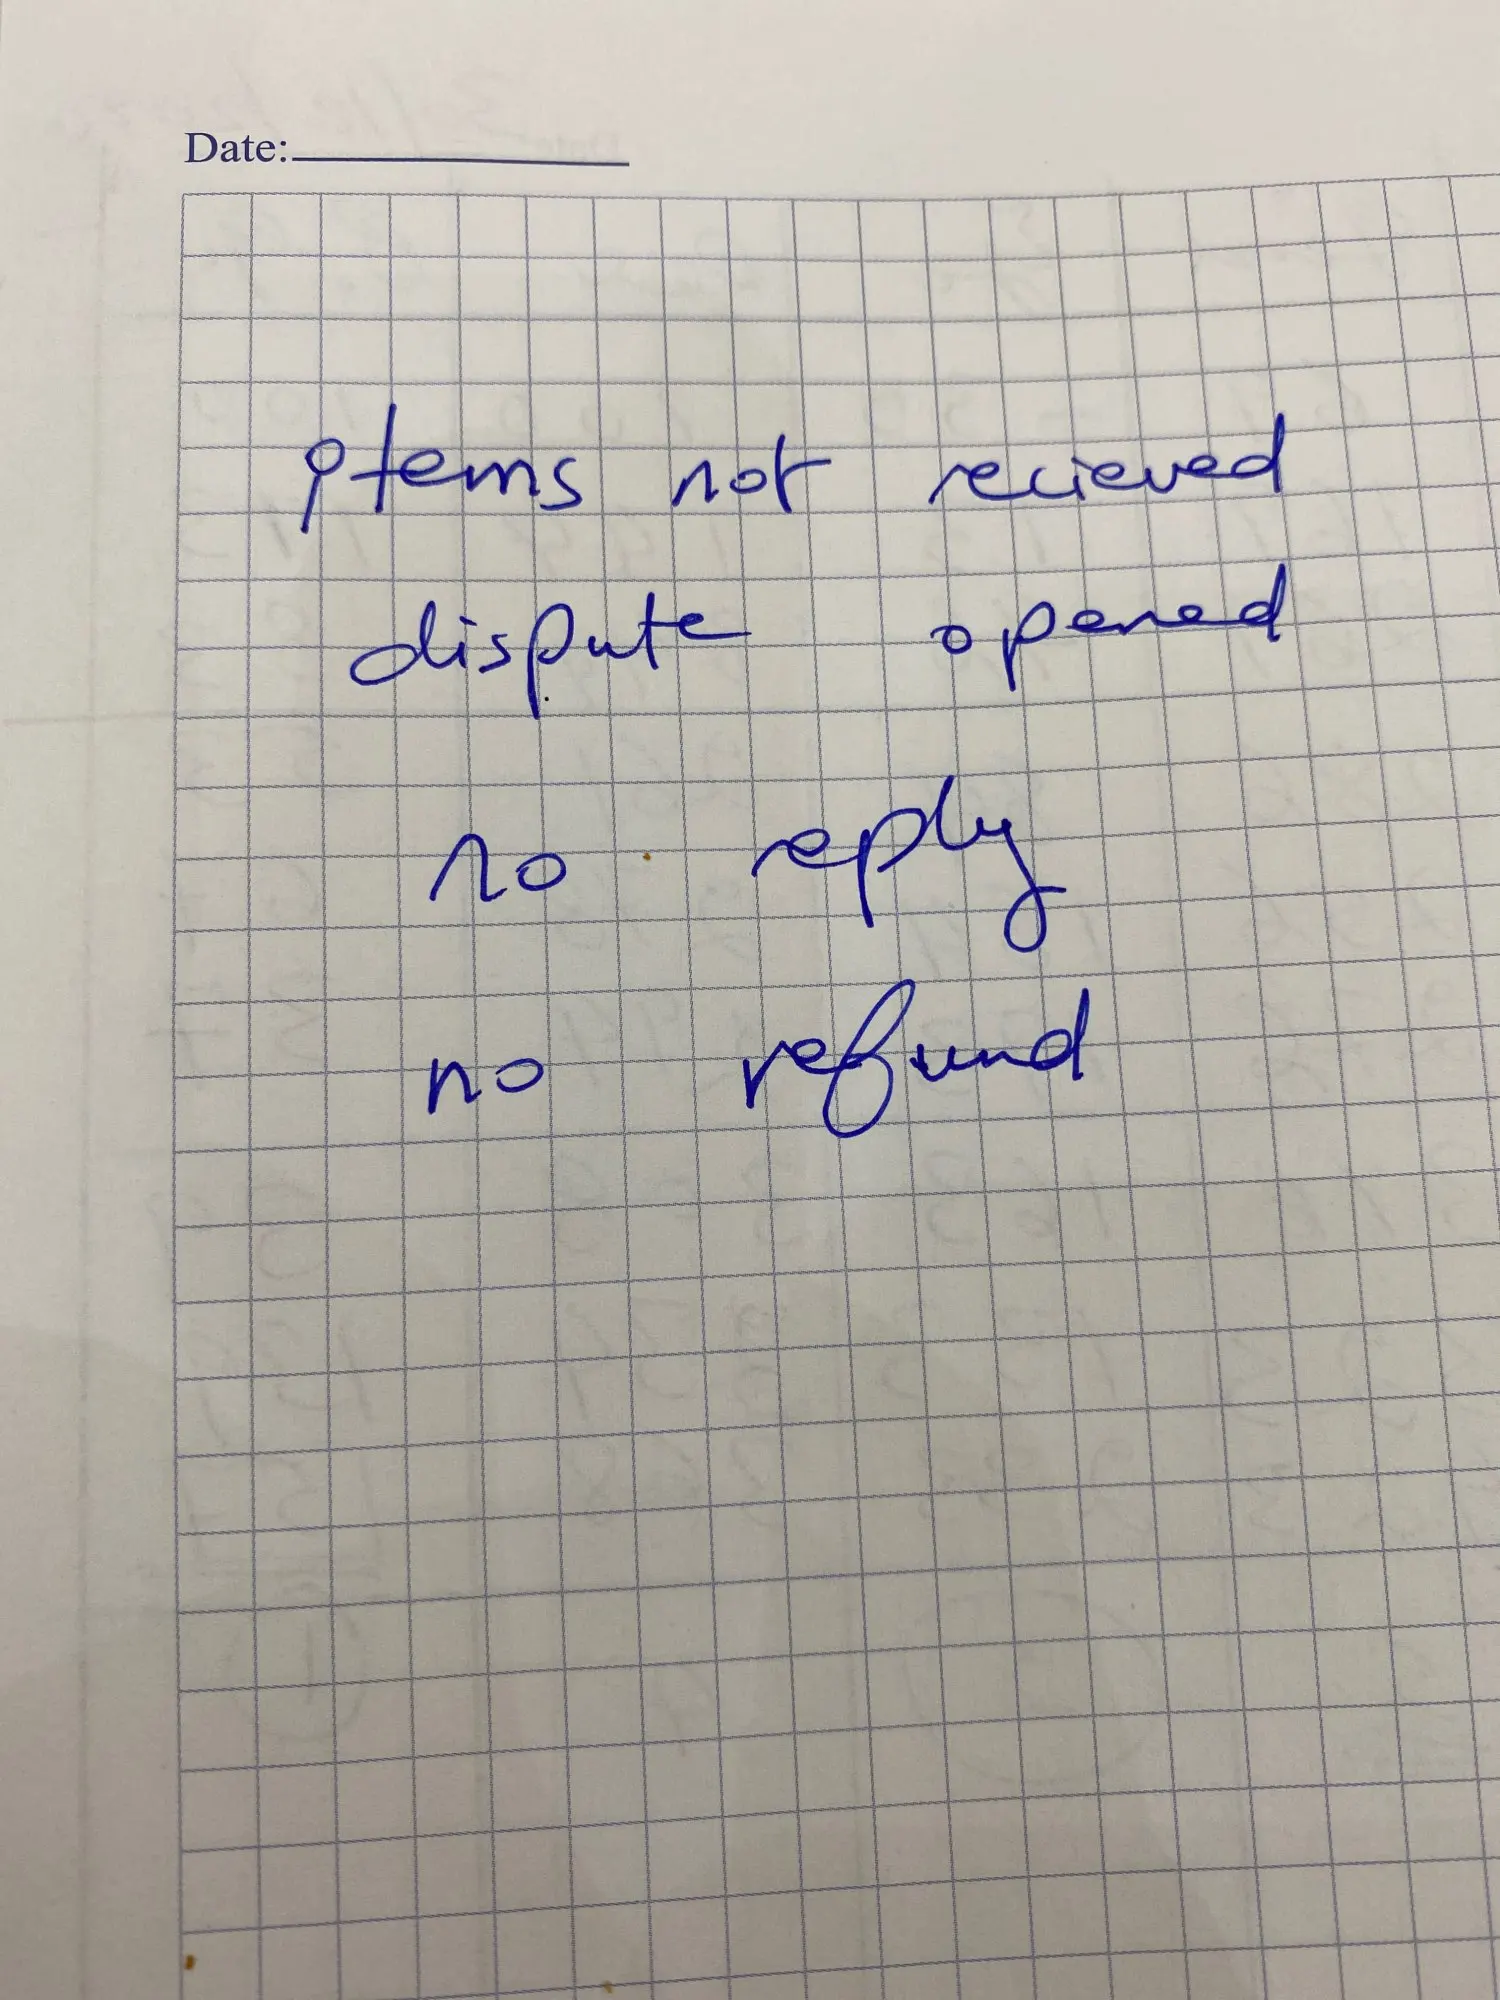 Date:
items not recieved
dispute opened
no reply
no refund